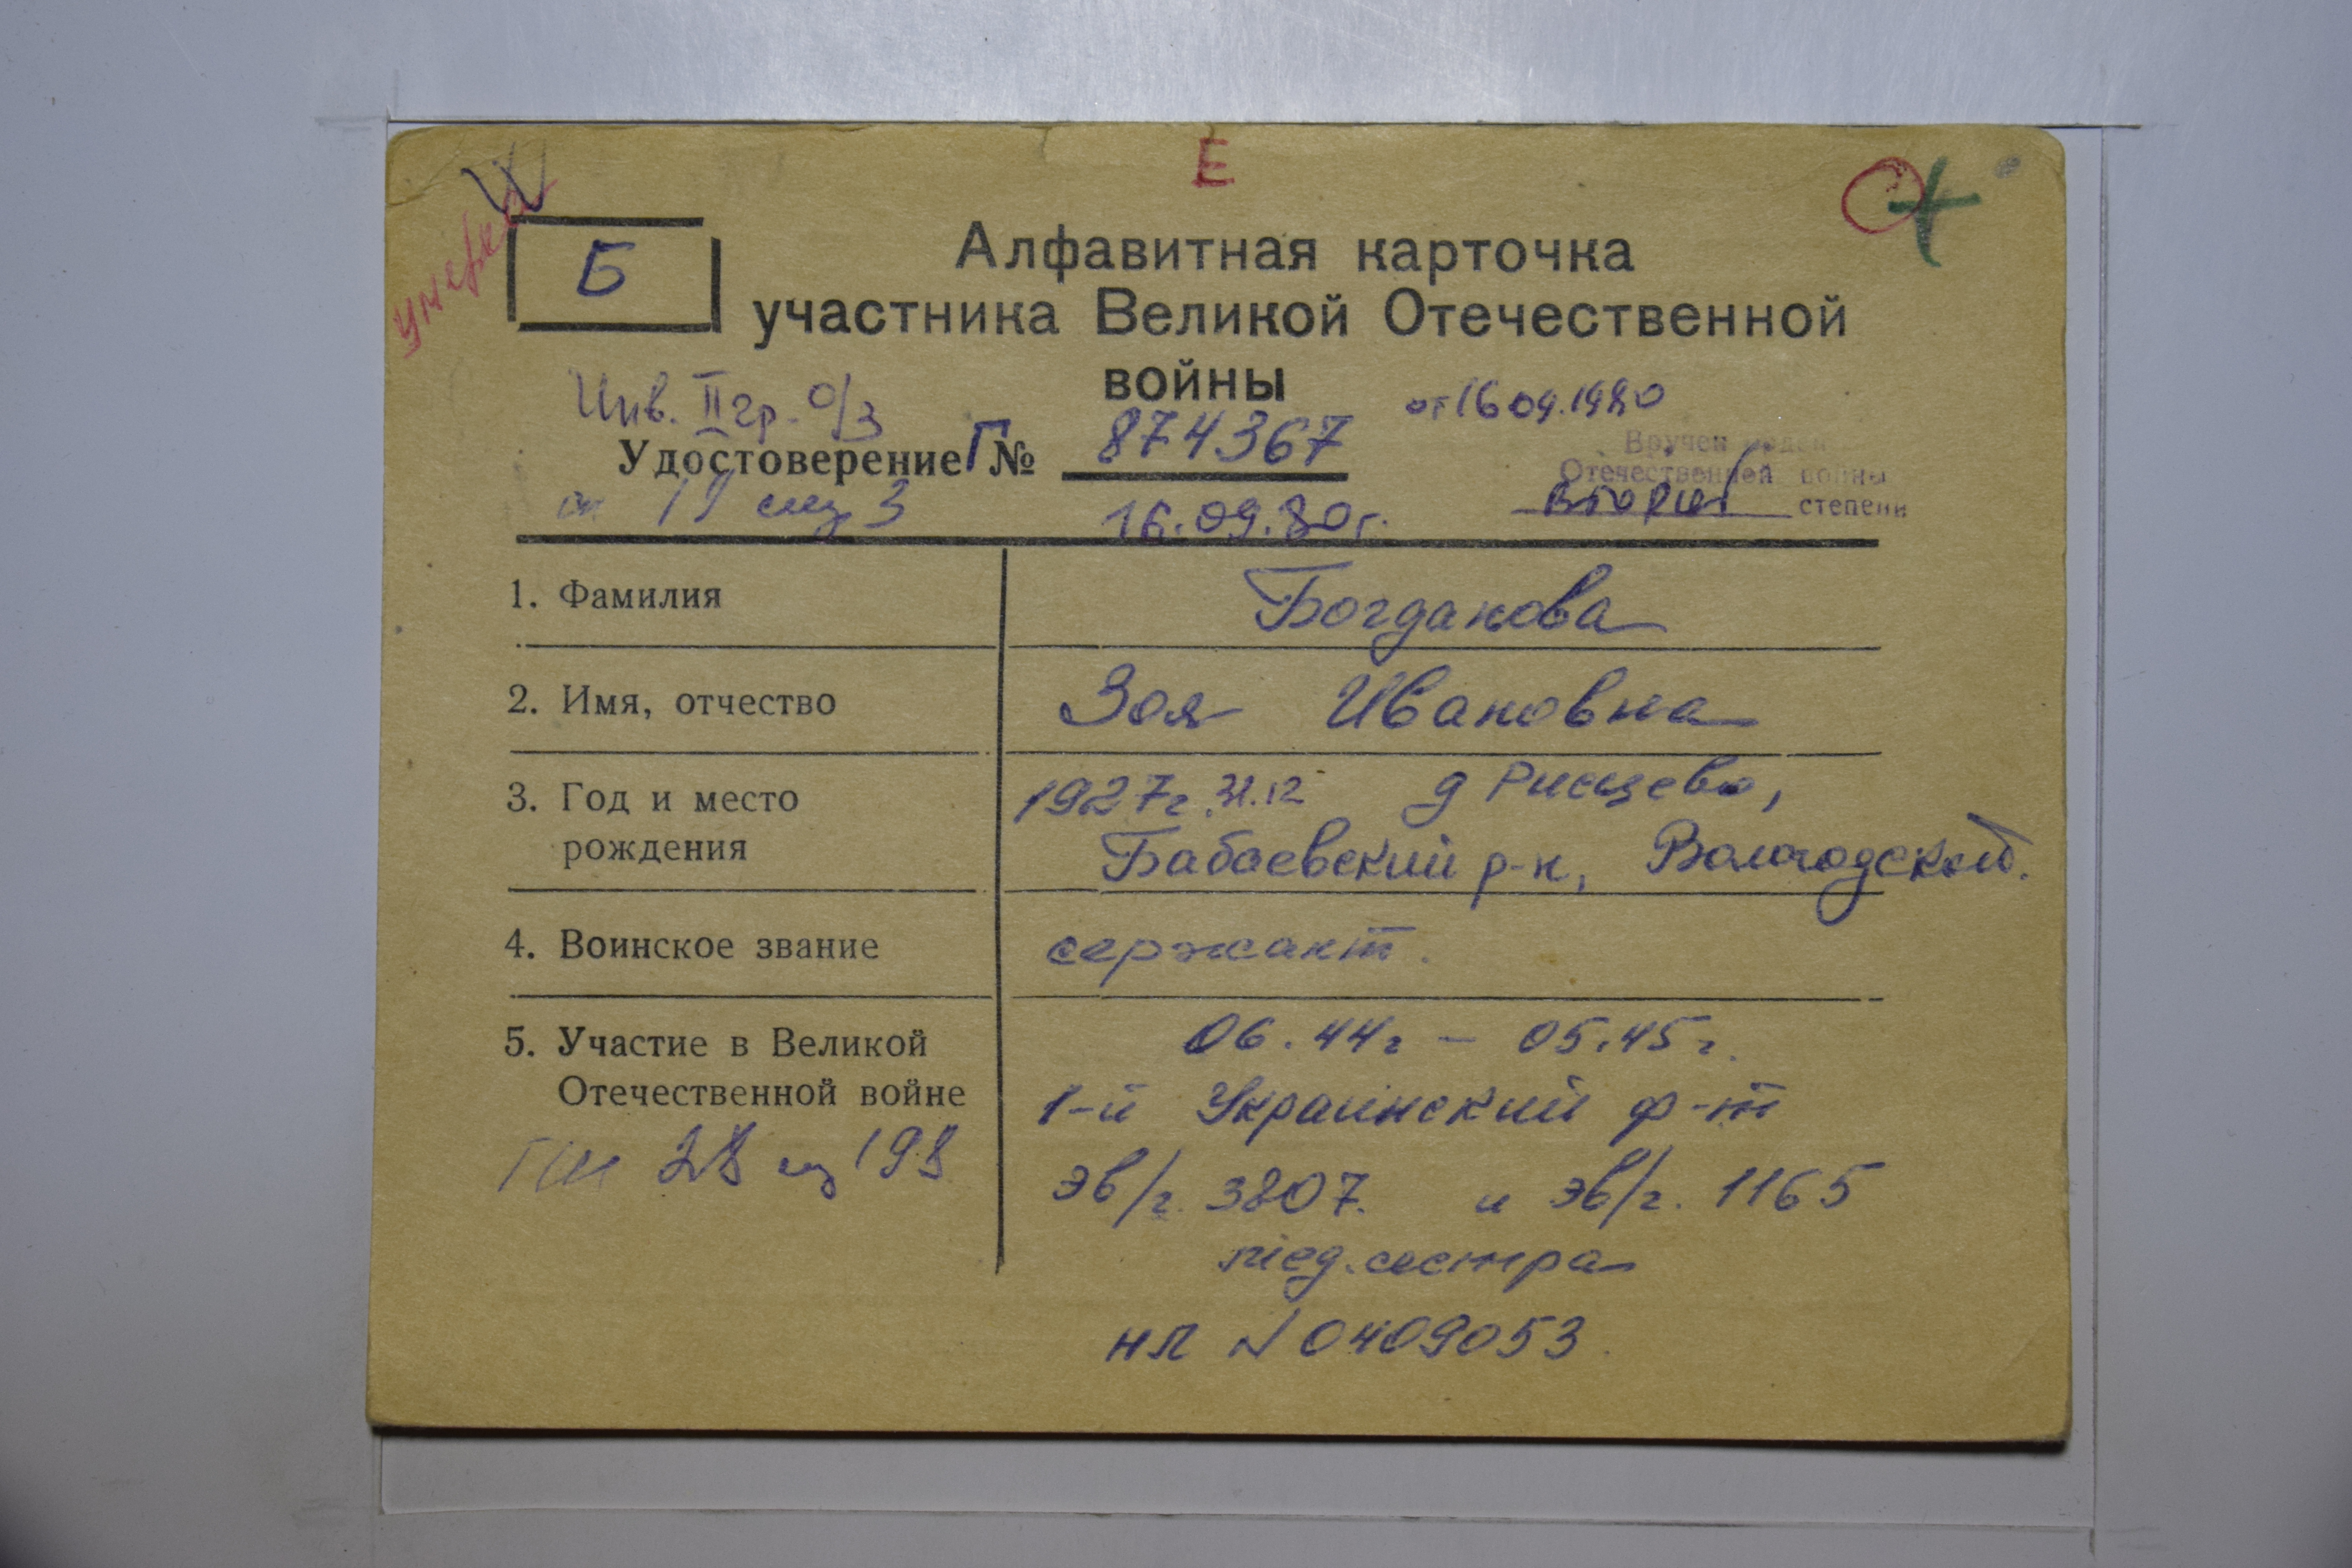 Е
умерла
Б
Алфавитная карточка
участника Великой Отечественной
войны
Инв. II гр. о/з
от 16.09.1980
Удостоверение Г № 874367
Вручен орден
Отечественной войны
второй степени
19 3
16.09.80г.
1. Фамилия Богданова
2. Имя, отчество Зоя Ивановна
3. Год и место рождения 1927г. 31.12 д
Бабаевский р-н, Вологодской.
4. Воинское звание сержант.
5. Участие в Великой Отечественной войне 06.44г – 05.45г.
1-й Украинский ф-т
эв/г. 3807. и эв/г. 1165
мед.сестра
нл N 0409053
28 198